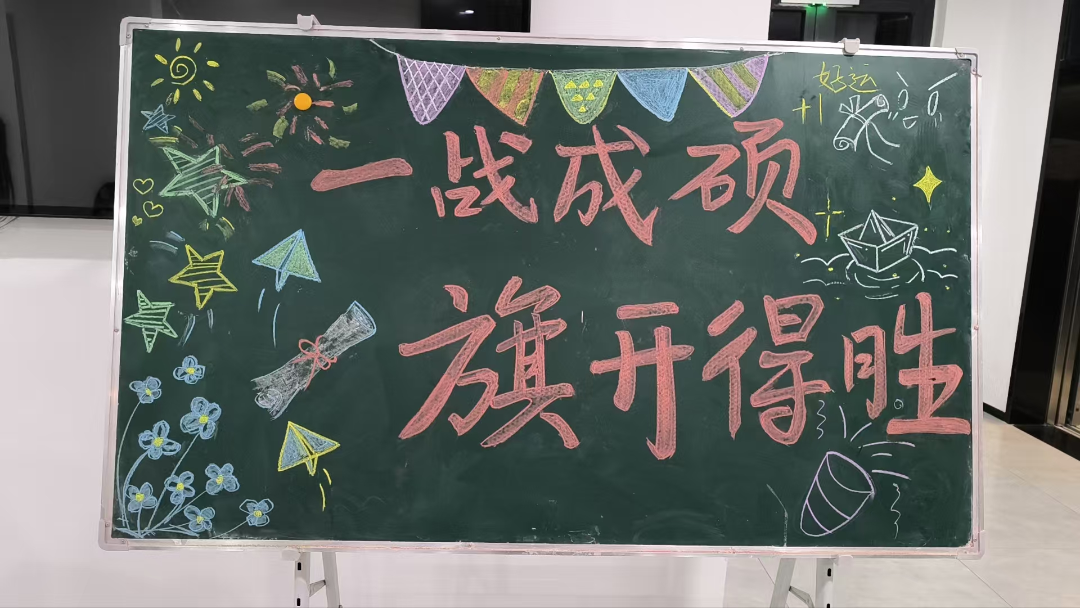 好运
+1
一战成硕
旗开得胜